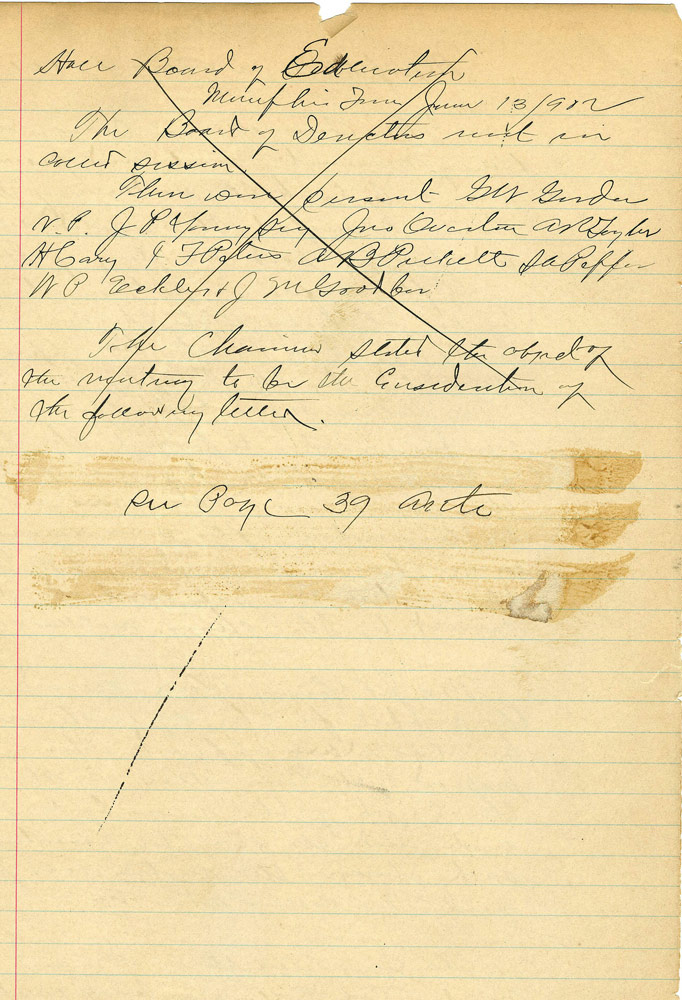 Hall Board of Education
Memphis Tenn June 13/902
The Board of Directors met in
called session.
There were present G W Gordon
V. P. J P Young Jno Overton A R Taylor
H Cary & T F Peters A B Pickett S A Pepper
W P Eckles & J M Goodbar
The Chairman stated the object of
the meeting to be the Consideration of
the following letter.
see Page 39 Ante